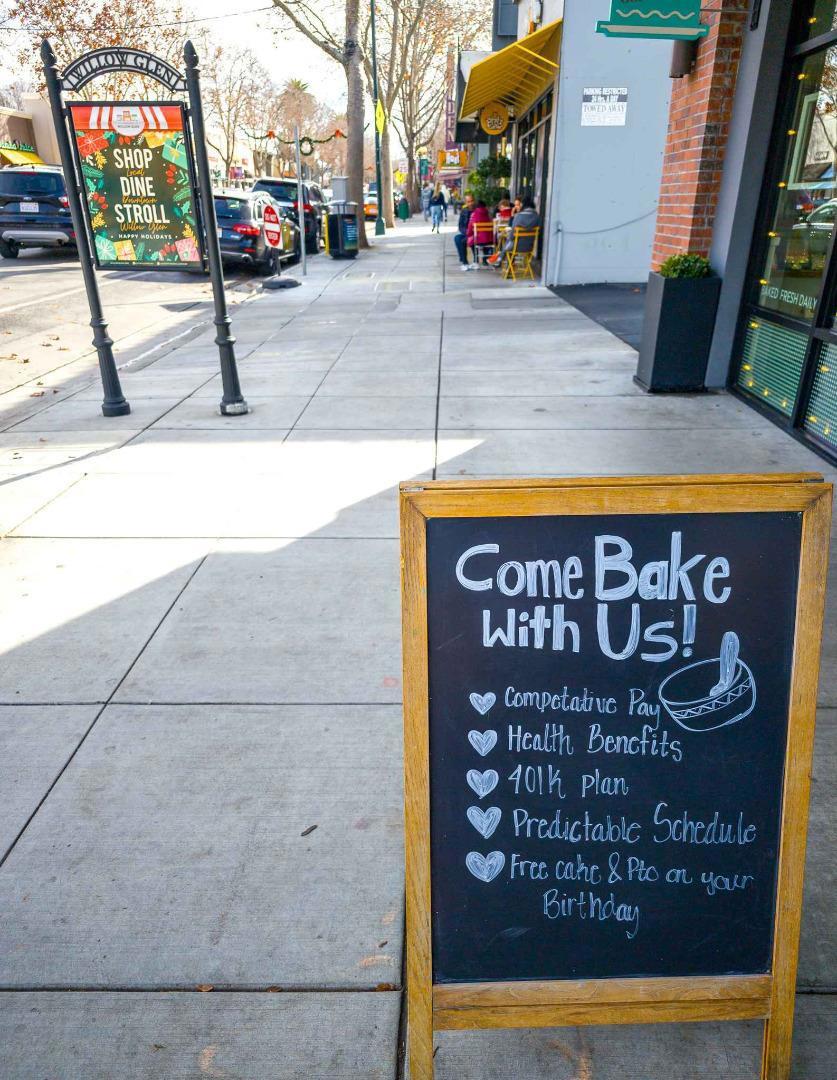 WILLOW GLEN
SHOP
Local
DINE
Downtown
STROLL
Willow Glen
HAPPY HOLIDAYS
DO NOT
ENTER
PARKING RESTRICTED
TOWED AWAY
BAKED FRESH DAILY
Come Bake
With Us!
Competative Pay
Health Benefits
401k plan
Predictable Schedule
Free cake & Pto on your
Birthday